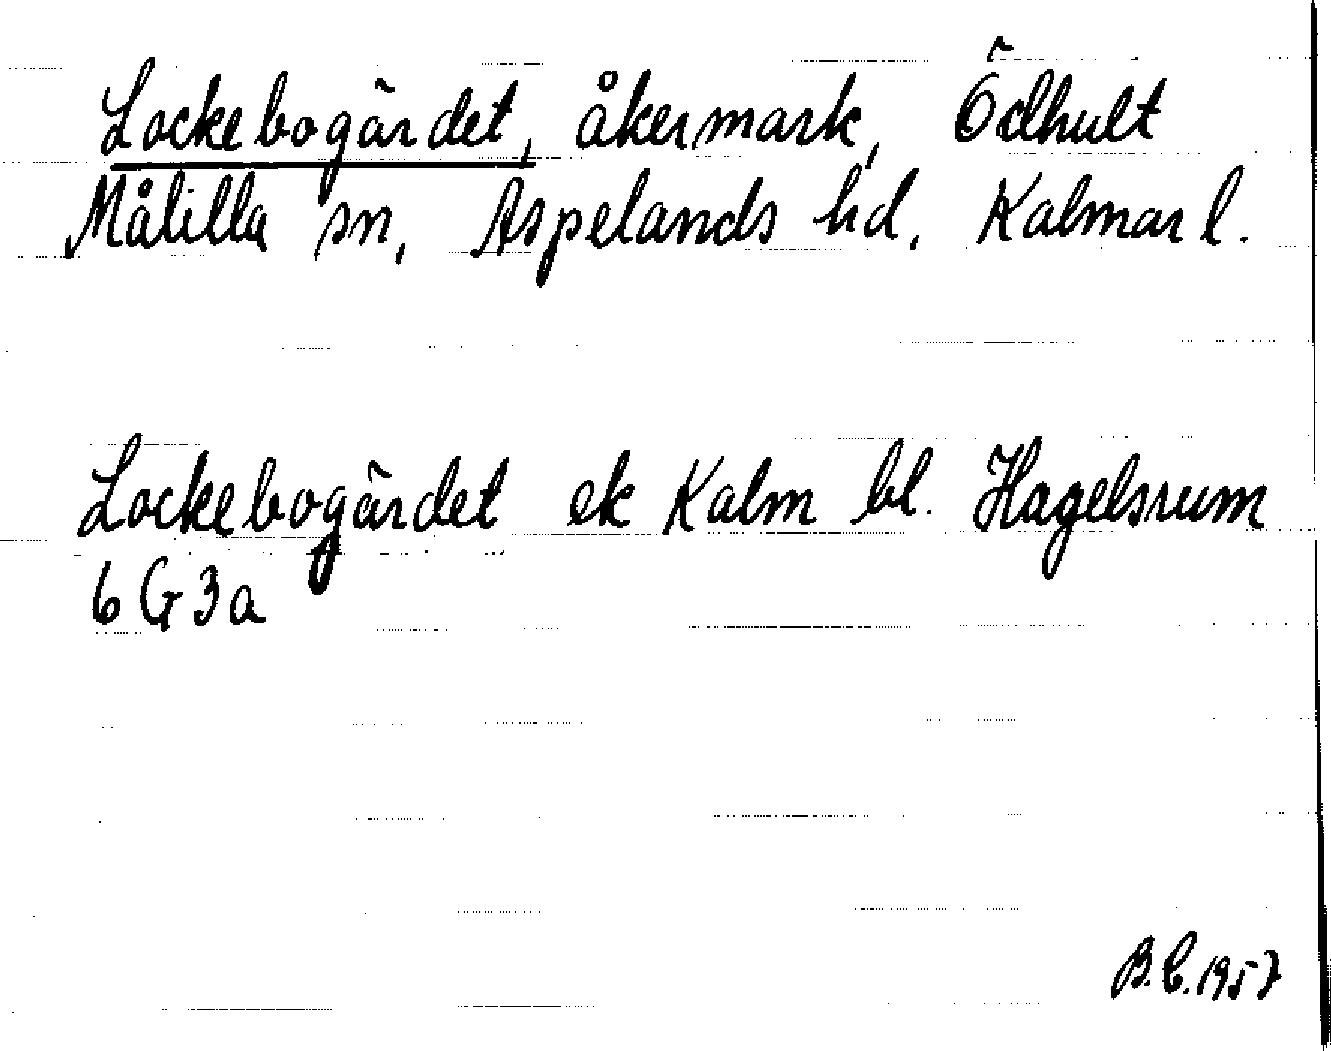 Lockebogärdet, åkermark, Ödhult
Målilla sn, Aspelands hd. Kalmar l.
Lockebogärdet ek Kalm bl. Hagelsrum
6 G 3 a
B.C. 1957